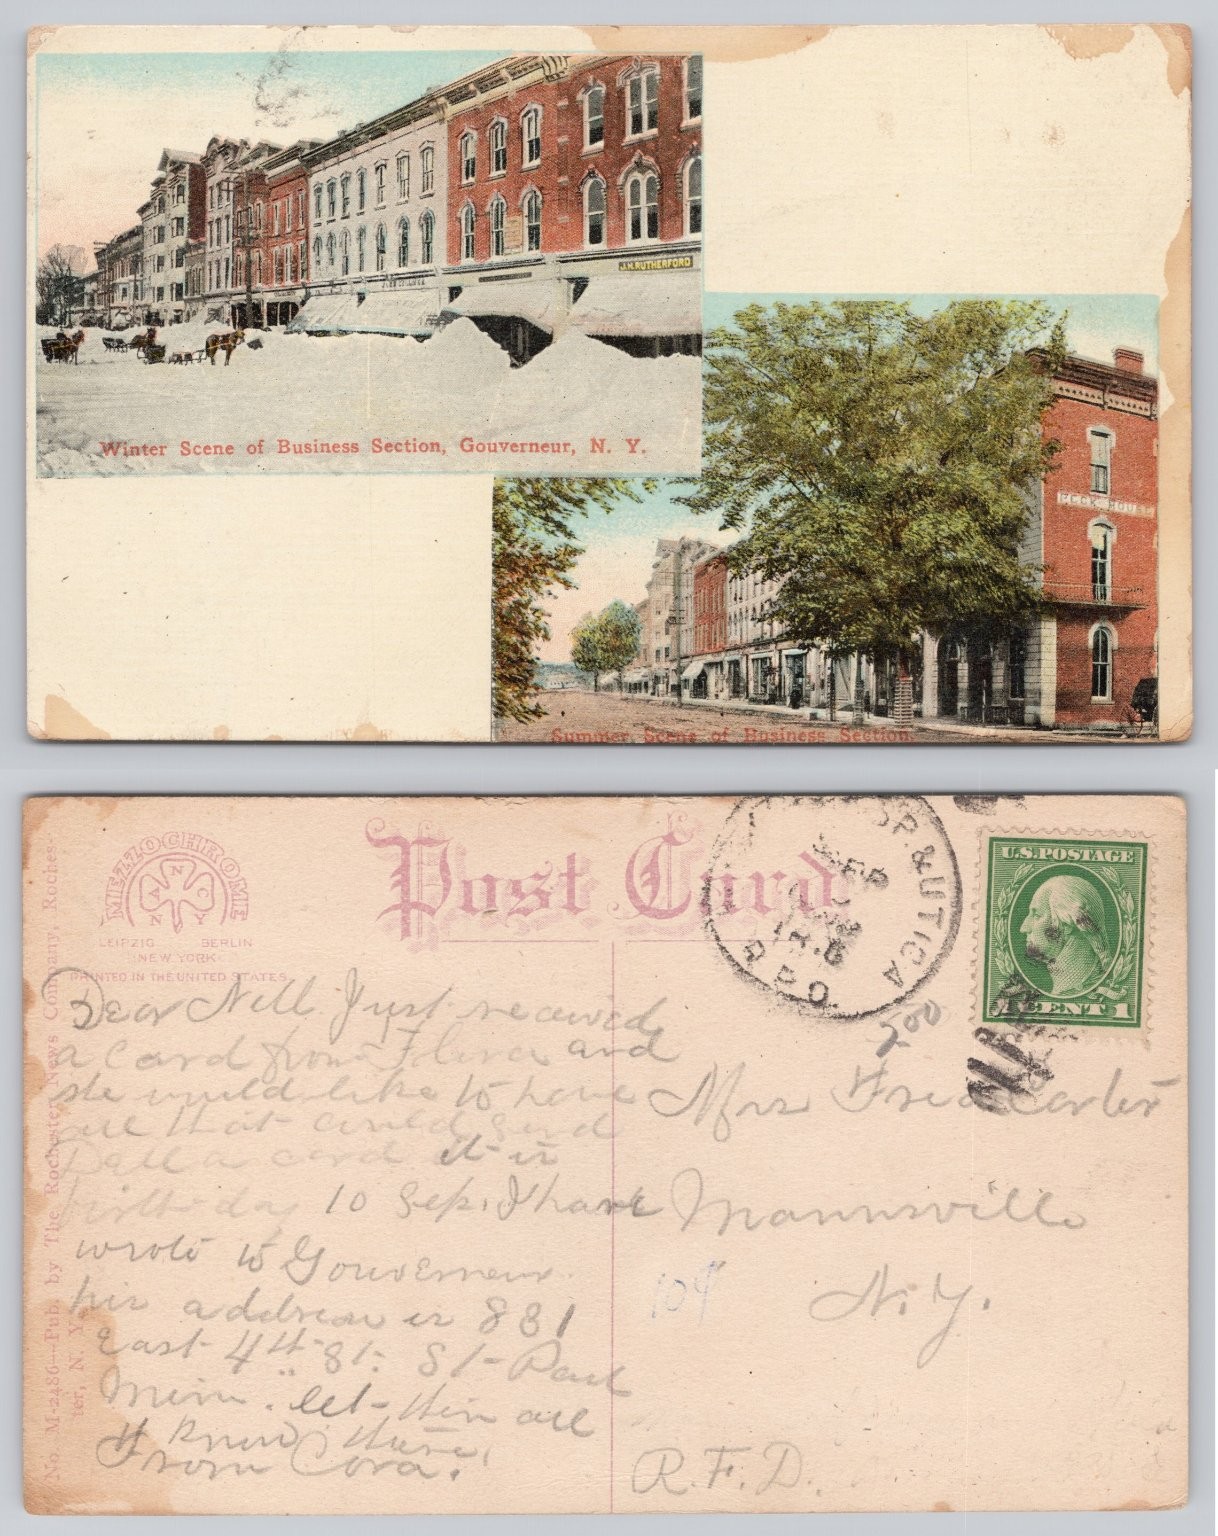 J.H. RUTHERFORD
Winter Scene of Business Section, Gouverneur, N. Y.
PECK HOUSE
Summer Scene of Business Section
MEZZOCHROME
ANCNY
LEIPZIG BERLIN
NEW YORK
PRINTED IN THE UNITED STATES
Post Card
OR. & UTICA
SEP
R.P.O.
U.S. POSTAGE
1 CENT 1
No. M-2486—Pub. by The Rochester News Company, Roches-
ter, N. Y.
Dear Nell. Just received
a card from Flora and
she would like to have
all that could send
Dell a card it is
birthday 10 Sep. I have
wrote to Gouverneur
his address is 881
East 4th St. St Paul
Minn. let them all
know there.
From Cora.
200
Mrs Fred Carter
Mannsville
N.Y.
104
R.F.D.